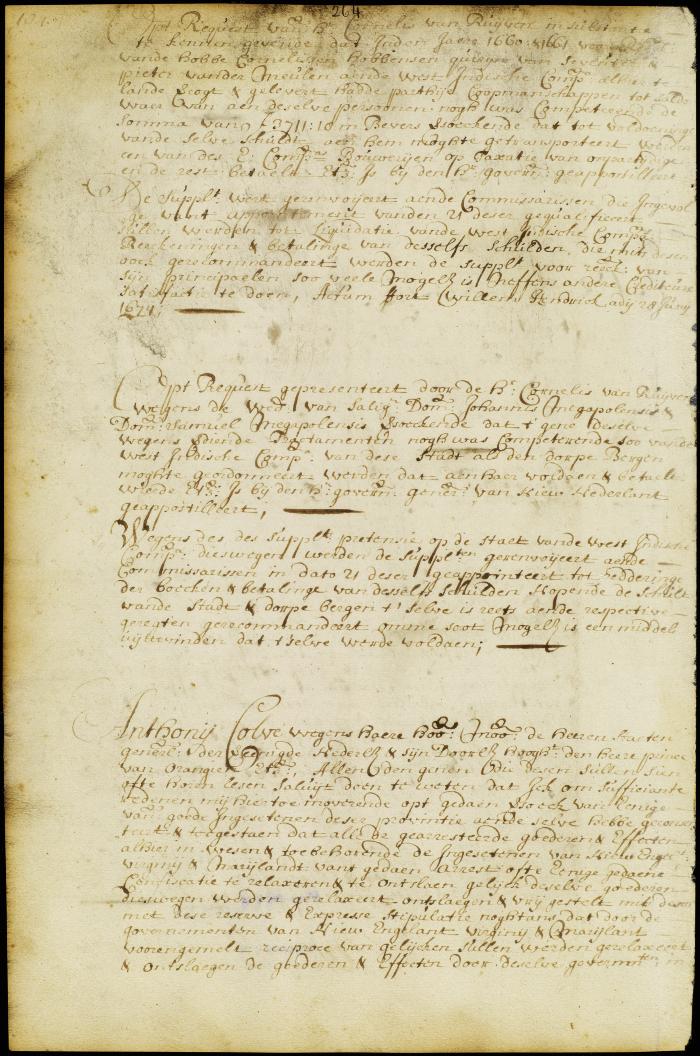 264
Opt Request van hr. Cornelis van Ruyven in substantie
te kennen gevende dat Inden Jaere 1660 & 1661
vande hobbe Cornelissen hobbensen quispe van
pieter vander Meulen aende West Indische Comp:
lande Cogt & gelevert hadde parthije Coopmanschappen tot
waer van aen deselve persoonen nogh was Competerende de
Somma van ƒ3711:10 in Bevers Versoeckende dat tot voldoeninge
vande selve Schult aen hem moghte getransporteert werden
een van des E. Compes: Bouwerijen op Taxatie van onpartydige
en de rest betaelen Etz: Is bij den hr. govern: geapostilleert
De Supplt. wert gerenvoijeert aende Commissarissen die Ingevol
ge want appoinctement vanden 21 deser gequalificeert
sullen werden tot Liquidatie vande West Indische Comps.
Reekeningen & betalinge van desselfs Schulden, die mits desen
oock gerecommandeert werden de supplt. voor reeck: van
sijn principaelen soo veele Mogelk is Neffens andere Crediteuren
Satisfactie te doen, Actum ffort Willem Hendrick ady 28 Junij
1674;
Opt Request gepresenteert door de hr. Cornelis van Ruyven
wegens de Wed: van Salig: Dom: Johannis Megapolensis &
Dom: Samuel Megapolensis Versoeckende dat t'gene deselve
wegens Tractamenten nogh was Competerende soo vande
West Indische Comp: van dese Stadt als den dorpe Bergen
moghte geordonneert werden dat aen haer voldaen & betaelt
wierde Etz: Is bij den hr. govern: gener: van Nieu Nederlant
geapostilleert;
Wegens des des Supplt. pretensie op de Staet vande West Indische
Comp: dieswegen werden de Supplten gerenvoijeert aende
Commissarissen in dato 21 deser geappointeert tot redderinge
der boecken & betalinge van desselfs schulden Nopende de Schult
vande Stadt & dorpe bergen t'selve is reets aende respective
geregten gerecommandeert omme soot Mogelk is een middel
uijttevinden dat t'selve werde voldaen;
Anthonij Colve wegens haere hoo: Moo: de heeren Staeten
generl: der Vereenigde Nederlk & sijn Doorlk hooght: den heere prince
van Orangien Etz: Allen den genen die desen sullen sien
ofte horen lesen Saluyt doen te weten dat Ick om sufficiante
redenen mij hiertoe moverende opt gedaen Versoeck van Eenige
van goede Ingesetenen deser provintie aende selve hebbe geconsen
teert & toegestaen dat alle de gearresteerde goederen & Effecten
alhier in wesen & toebehorende de Ingesetenen van Nieu Engelt
virginij & Marijlandt vant gedaen arrest ofte Eenige gedaene
Confiscatie te relaxeren & te ontslaen gelijck deselve goederen
dieswegen werden gerelaxeert ontslaegen & vrij gestelt mits desen
met dese reserve & Expresse Stipulatie noghtans dat door de
governementen van Nieu Engelant virginij & Marijlant
voorengemelt reciproce van gelijcken sullen werden gerelaxeert
& ontslaegen de goederen & Effecten door deselve governmten: in